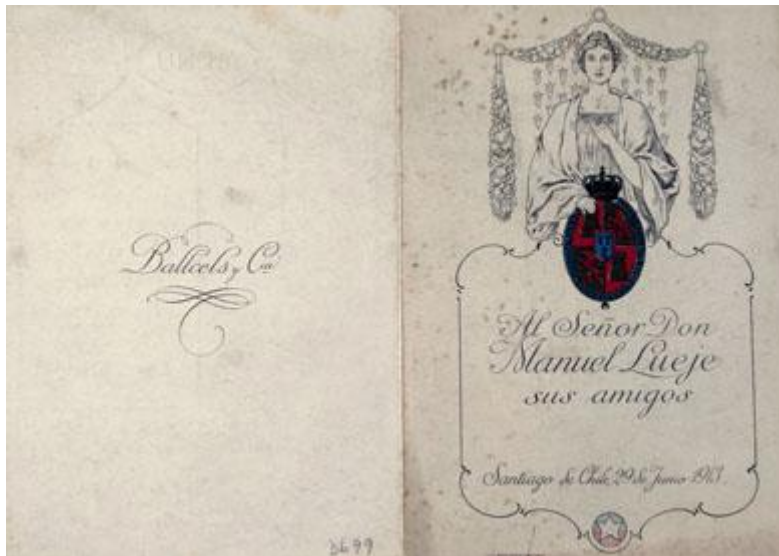 Ballcels y Cia
Al Señor Don
Manuel Lueje
sus amigos
Santiago de Chile, 29 de Junio 1913.